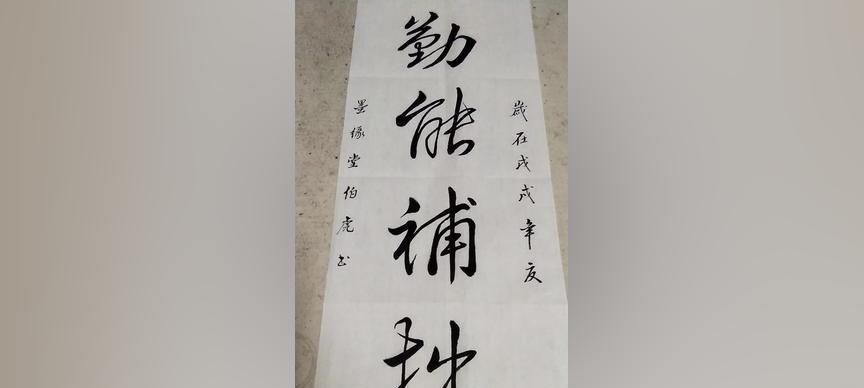 歲在戊戌年夏
勤能補拙
墨缘堂伯虎书